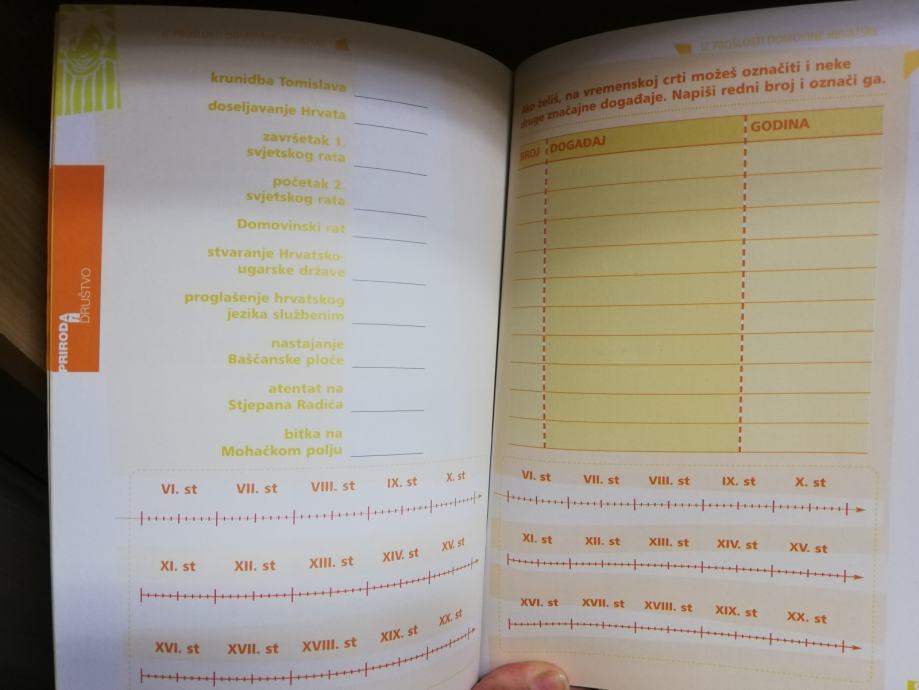 IZ PROŠLOSTI DOMOVINE HRVATSKE
krunidba Tomislava
doseljavanje Hrvata
završetak 1.
svjetskog rata
početak 2.
svjetskog rata
Domovinski rat
stvaranje Hrvatsko-
ugarske države
proglašenje hrvatskog
jezika službenim
nastajanje
Bašćanske ploče
atentat na
Stjepana Radića
bitka na
Mohačkom polju
PRIRODA
DRUŠTVO
VI. st VII. st VIII. st IX. st X. st
XI. st XII. st XIII. st XIV. st XV. st
XVI. st XVII. st XVIII. st XIX. st XX. st
IZ PROŠLOSTI DOMOVINE HRVATSKE
Ako želiš, na vremenskoj crti možeš označiti i neke
druge značajne događaje. Napiši redni broj i označi ga.
BROJ DOGAĐAJ GODINA
VI. st VII. st VIII. st IX. st X. st
XI. st XII. st XIII. st XIV. st XV. st
XVI. st XVII. st XVIII. st XIX. st XX. st